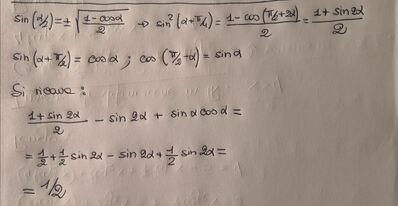 sin(α/2)=±√(1-cosα/2) → sin²(α+π/4)=1-cos(π/2+2α)/2=1+sin2α/2
sin(α+π/2)=cosα; cos(π/2-α)=sinα
Si ricava:
1+sin2α/2 - sin2α + sinαcosα=
=1/2+1/2 sin2α-sin2α+1/2 sin2α=
=1/2